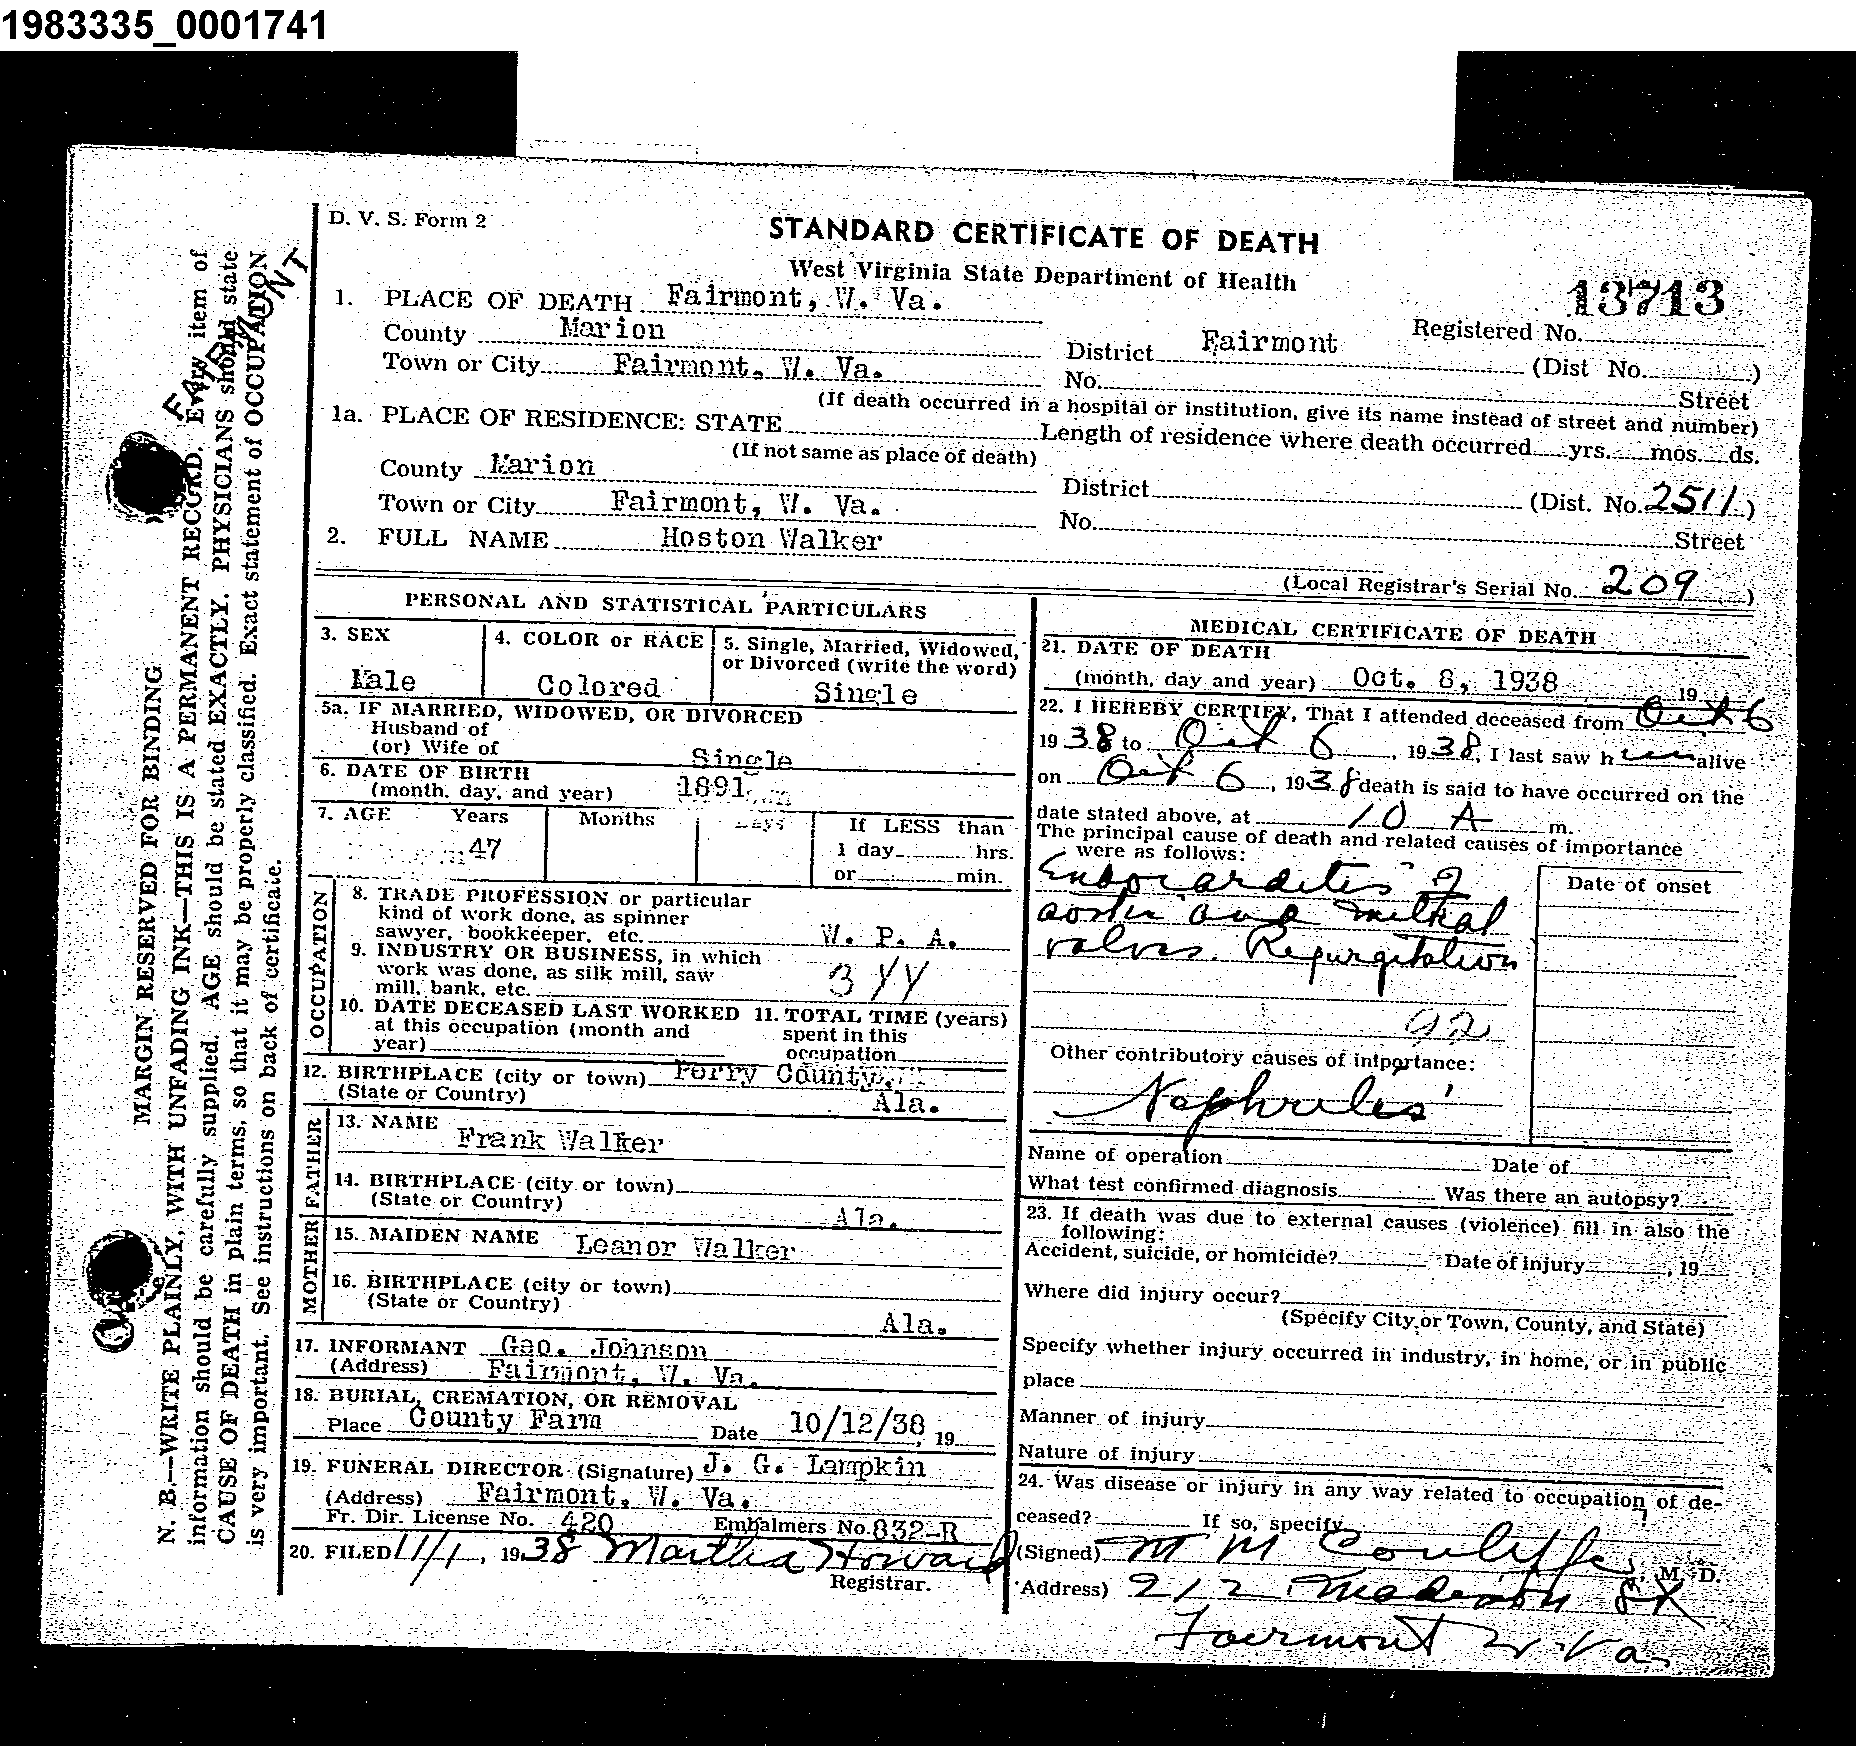 1983335_0001741
D. V. S. Form 2
STANDARD CERTIFICATE OF DEATH
West Virginia State Department of Health
13713
1. PLACE OF DEATH Fairmont, W. Va.
Registered No.
County Marion
District Fairmont (Dist No. )
Town or City Fairmont, W. Va.
No. Street
(If death occurred in a hospital or institution, give its name instead of street and number)
1a. PLACE OF RESIDENCE: STATE Length of residence where death occurred yrs. mos. ds.
(If not same as place of death)
County Marion
District (Dist. No. 2511)
Town or City Fairmont, W. Va.
No. Street
2. FULL NAME Hoston Walker
(Local Registrar's Serial No. 209 )
PERSONAL AND STATISTICAL PARTICULARS
3. SEX
Male
4. COLOR or RACE
Colored
5. Single, Married, Widowed,
or Divorced (write the word)
Single
5a. IF MARRIED, WIDOWED, OR DIVORCED
Husband of
(or) Wife of Single
6. DATE OF BIRTH
(month, day, and year) 1891
7. AGE Years Months Days If LESS than
47 1 day hrs.
or min.
OCCUPATION
8. TRADE PROFESSION or particular
kind of work done, as spinner
sawyer, bookkeeper, etc. W. P. A.
9. INDUSTRY OR BUSINESS, in which
work was done, as silk mill, saw
mill, bank, etc.
10. DATE DECEASED LAST WORKED
at this occupation (month and
year)
11. TOTAL TIME (years)
spent in this
occupation
12. BIRTHPLACE (city or town) Perry County,
(State or Country) Ala.
FATHER
13. NAME Frank Walker
14. BIRTHPLACE (city or town)
(State or Country) Ala.
MOTHER
15. MAIDEN NAME Leanor Walker
16. BIRTHPLACE (city or town)
(State or Country) Ala.
17. INFORMANT Geo. Johnson
(Address) Fairmont, W. Va.
18. BURIAL, CREMATION, OR REMOVAL
Place County Farm Date 10/12/38, 19
19. FUNERAL DIRECTOR (Signature) J. G. Lampkin
(Address) Fairmont, W. Va.
Fr. Dir. License No. 420 Embalmers No. 832-R
20. FILED 11/1, 1938 Martha Howard
Registrar.
MEDICAL CERTIFICATE OF DEATH
21. DATE OF DEATH
(month, day and year) Oct. 8, 1938 19
22. I HEREBY CERTIFY, That I attended deceased from Oct 6
1938 to Oct 6, 1938, I last saw him alive
on Oct 6, 1938 death is said to have occurred on the
date stated above, at 10 A m.
The principal cause of death and related causes of importance
were as follows:
Date of onset
Endocarditis of
aortic and mitral
valves. Regurgitation
92
Other contributory causes of importance:
Nephritis
Name of operation Date of
What test confirmed diagnosis Was there an autopsy?
23. If death was due to external causes (violence) fill in also the
following:
Accident, suicide, or homicide? Date of injury , 19
Where did injury occur?
(Specify City or Town, County, and State)
Specify whether injury occurred in industry, in home, or in public
place
Manner of injury
Nature of injury
24. Was disease or injury in any way related to occupation of de-
ceased? If so, specify
(Signed) M M , M. D.
(Address) 212 Madison St
Fairmont W. Va.
MARGIN RESERVED FOR BINDING
N. B.—WRITE PLAINLY, WITH UNFADING INK—THIS IS A PERMANENT RECORD. Every item of
information should be carefully supplied. AGE should be stated EXACTLY. PHYSICIANS should state
CAUSE OF DEATH in plain terms, so that it may be properly classified. Exact statement of OCCUPATION
is very important. See instructions on back of certificate.
FAIRMONT